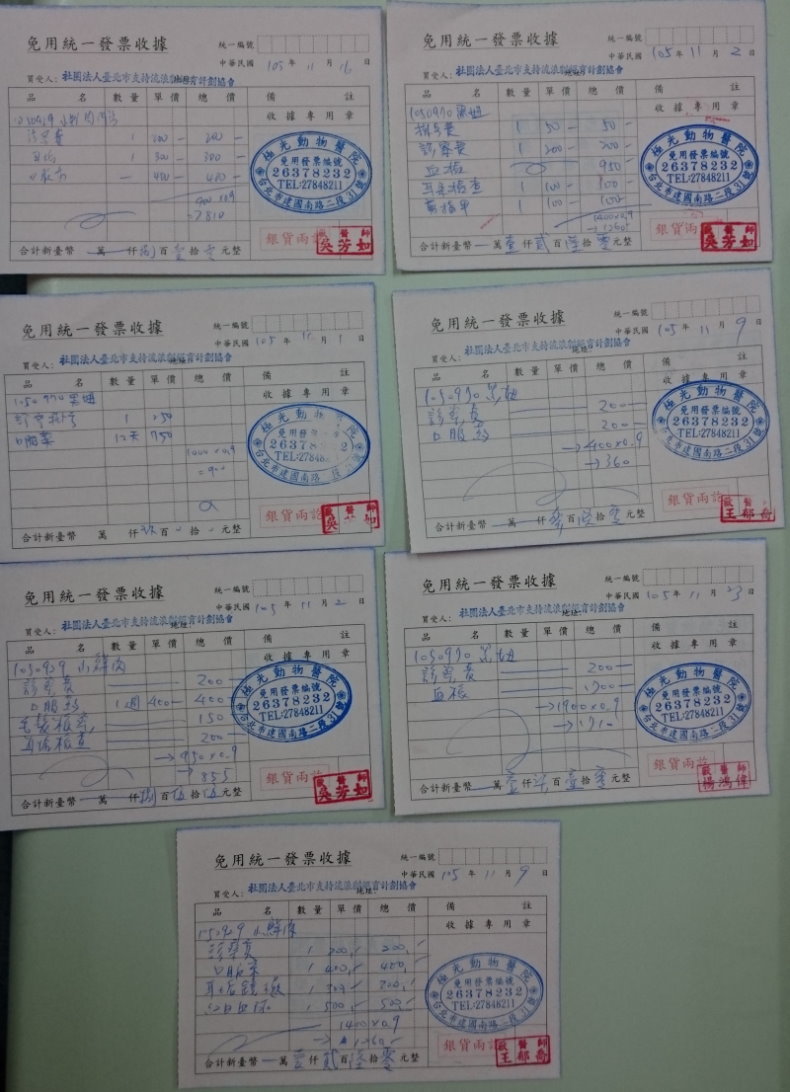 免用統一發票收據
統一編號
中華民國 105 年 11 月 16 日
買受人： 社團法人臺北市支持流浪
計劃協會
品 名 數量 單價 總價 備 註
收據專用章
1 200 200
1 300 300
400 400
900 x 0.9
→ 810
極光動物醫院
免用發票編號
26378232
TEL:27848211
台北市建國南路二段31號
合計新臺幣 萬 仟 捌 百 壹 拾 零 元整
銀貨兩訖
醫師
吳芳如
免用統一發票收據
統一編號
中華民國 105 年 11 月 2 日
買受人： 社團法人臺北市支持流浪
計劃協會
品 名 數量 單價 總價 備 註
收據專用章
1050970 黑妞
掛號費 1 50 50
診察費 1 200 200
血檢 950
耳朵檢查 1 100 100
剪指甲 1 100 100
1400 x 0.9
→ 1260
極光動物醫院
免用發票編號
26378232
TEL:27848211
台北市建國南路二段31號
合計新臺幣 萬 壹 仟 貳 百 陸 拾 零 元整
銀貨兩
醫師
吳芳如
免用統一發票收據
統一編號
中華民國 105 年 11 月 1 日
買受人： 社團法人臺北市支持流浪
計劃協會
品 名 數量 單價 總價 備 註
收據專用章
1050970 黑妞
1 250
12天 750
1000 x 0.9
= 900
極光動物
26378
TEL:2784
台北市建國南路
合計新臺幣 萬 仟 玖 百 拾 元整
銀貨兩訖
醫師
吳
如
免用統一發票收據
統一編號
中華民國 105 年 11 月 9 日
買受人： 社團法人臺北市支持流浪
計劃協會
品 名 數量 單價 總價 備 註
收據專用章
1050970 黑妞
診察費 200
口服藥 200
→ 400 x 0.9
→ 360
極光動物醫院
免用發票編號
26378232
TEL:27848211
台北市建國南路二段31號
合計新臺幣 萬 仟 參 百 陸 拾 零 元整
銀貨兩訖
醫師
王郁
免用統一發票收據
統一編號
中華民國 105 年 11 月 2 日
買受人： 社團法人臺北市支持流浪
計劃協會
品 名 數量 單價 總價 備 註
收據專用章
1050929 小鮮肉
診察費 200
口服藥 1週 400 400
毛髮檢查 150
耳垢檢查 200
→ 950 x 0.9
→ 855
極光動物醫院
免用發票編號
26378232
TEL:27848211
台北市建國南路二段31號
合計新臺幣 萬 仟 捌 百 伍 拾 伍 元整
銀貨兩訖
醫師
吳芳如
免用統一發票收據
統一編號
中華民國 105 年 11 月 23 日
買受人： 社團法人臺北市支持流浪
計劃協會
品 名 數量 單價 總價 備 註
收據專用章
1050970 黑妞
診察費 200
血檢 1700
→ 1900 x 0.9
→ 1710
極光動物醫院
免用發票編號
26378232
TEL:27848211
台北市建國南路二段31號
合計新臺幣 萬 壹 仟 柒 百 壹 拾 零 元整
銀貨兩訖
醫師
楊鴻偉
免用統一發票收據
統一編號
中華民國 105 年 11 月 9 日
買受人： 社團法人臺北市支持流浪
計劃協會
品 名 數量 單價 總價 備 註
收據專用章
小鮮肉
診察費 1 200 200
口服藥 1 400 400
耳垢鏡檢 1 300
1 500 500
1400 x 0.9
→ 1260
極光動物醫院
免用發票編號
26378232
TEL:27848211
台北市建國南路二段31號
合計新臺幣 萬 壹 仟 貳 百 陸 拾 零 元整
銀貨兩訖
醫師
王郁